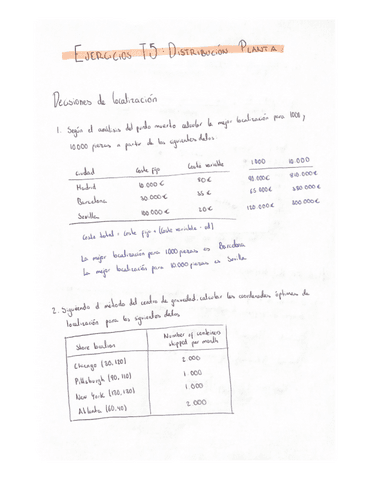 EJERCICIOS T5: DISTRIBUCIÓN PLANTA
Decisiones de localización
1. Según el análisis del punto muerto calcular la mejor localización para 1000 y
10.000 piezas a partir de los siguientes datos.
Ciudad Coste fijo Coste variable 1000 10.000
Madrid 10.000€ 80€ 90.000€ 810.000€
Barcelona 30.000€ 35€ 65.000€ 380.000€
Sevilla 100.000€ 20€ 120.000€ 300.000€
Coste total = Coste fijo + (Coste variable · ud)
La mejor localización para 1000 piezas es Barcelona
La mejor localización para 10.000 piezas es Sevilla
2. Siguiendo el método del centro de gravedad, calcular las coordenadas óptimas de
localización para los siguientes datos
Store location Number of containers
shipped per month
Chicago (30,120) 2.000
Pittsburgh (90,110) 1.000
New York (130,130) 1.000
Atlanta (60,40) 2.000